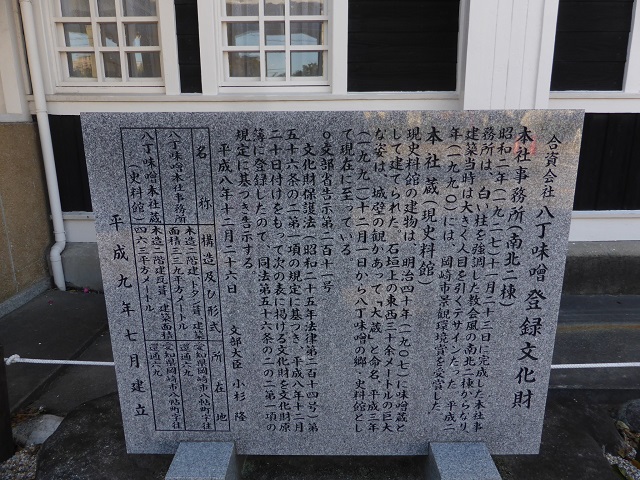 合資会社 八丁味噌 登録文化財
本社事務所(南北二棟)
昭和二年(一九二七)十一月二十三日に完成した本社事
務所は、白い柱を強調した教会風の南北二棟からなり、
建築当時は大きく人目を引くデザインだった。平成二
年(一九九〇)には、岡崎市景観環境賞を受賞した。
本社蔵(現史料館)
現史料館の建物は、明治四十年(一九〇七)に味噌蔵と
して建てられた。石垣上の東西三十余メートルの巨大
な姿は、城壁の観があって「大蔵」と命名、平成三年
(一九九一)十二月一日から八丁味噌の郷・史料館とし
て現在に至っている。
〇文部省告示第二百十一号
文化財保護法(昭和二十五年法律第二百十四号)第
五十六条の二第一項の規定に基づき、平成八年十二月
二十日付けをもって次の表に掲げる文化財を文化財原
簿に登録したので、同法第五十六条の二の二第一項の
規定に基づき告示する。
平成八年十二月二十六日
文部大臣 小杉 隆
名称 構造及び形式 所在地
八丁味噌本社事務所 木造二階建、トタン葺、建築面積二三九平方メートル 愛知県岡崎市八帖町字往還通六九
八丁味噌本社蔵(史料館) 木造二階建、瓦葺、建築面積四六三平方メートル 愛知県岡崎市八帖町字往還通六九
平成九年七月建立